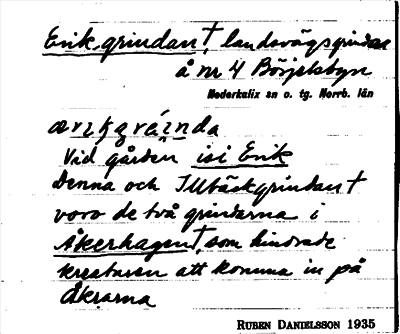 Erikgrindan†, landsvägsgrindar
å nr 4 Börjelsbyn
Nederkalix sn o. tg. Norrb. län
Vid gården isi Erik
Denna och Illbäckgrindan†
voro de två grindarna i
Åkerhagen†, som hindrade
kreaturen att komma in på
åkrarna
RUBEN DANIELSSON 1935